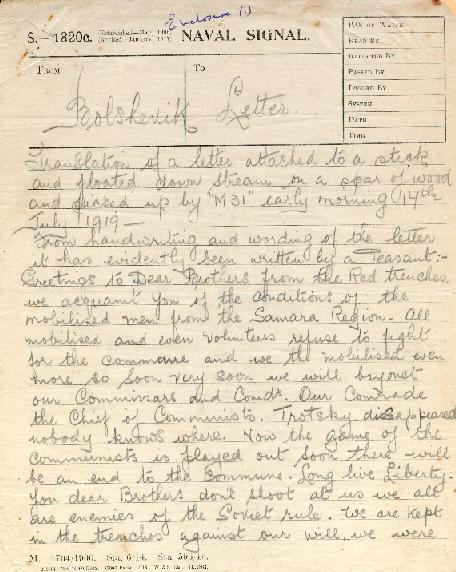 Enclosure (1)
S.—1320c.
NAVAL SIGNAL.
FROM
TO
P/L OF WATCH
READ BY
REPORTED BY
PASSED BY
LOGGED BY
SYSTEM
DATE
TIME
Bolshevik Letter.
Translation of a letter attached to a stick
and floated down stream on a spar of wood
and picked up by "M31" early morning 14th
July 1919 —
From handwriting and wording of the letter
it has evidently been written by a Peasant:-
Greetings to Dear Brothers from the Red trenches
we acquaint you of the conditions of the
mobilised men from the Samara Region. All
mobilised and even volunteers refuse to fight
for the commune and we the mobilised even
more so soon very soon we will bayonet
our Commissars and Comds. Our Comrade
the Chief of Communists. Trotsky disappeared
nobody knows where. Now the game of the
Communists is played out soon there will
be an end to the Commune. Long live Liberty-
You dear Brothers don't shoot at us we all
are enemies of the Soviet rule. We are kept
in the trenches against our will, we were